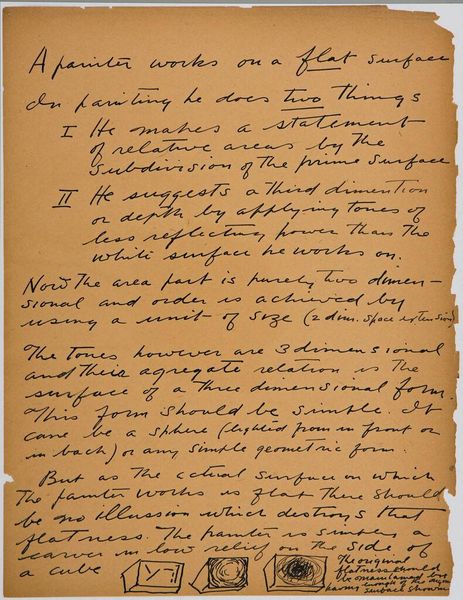 A painter works on a flat surface
In painting he does two things
I He makes a statement
of relative areas by the
subdivision of the prime surface
II He suggests a third dimention
or depth by applying tones of
less reflecting power than the
white surface he works on.
Now the area part is purely two dimen-
sional and order is achieved by
using a unit of size (2 dim. space extension)
The tones however are 3 dimensional
and their agregate relation is the
surface of a three dimensional form.
This form should be simple. It
cane be a sphere (lighted from in front or
in back) or any simple geometric form.
But as the actual surface on which
the painter works is flat there should
be no illussion which destroys that
flatness. The painter is simply a
carver in low relief on the side of
a cube
The original
flatness should
be maintained by
enough of the
surface showing